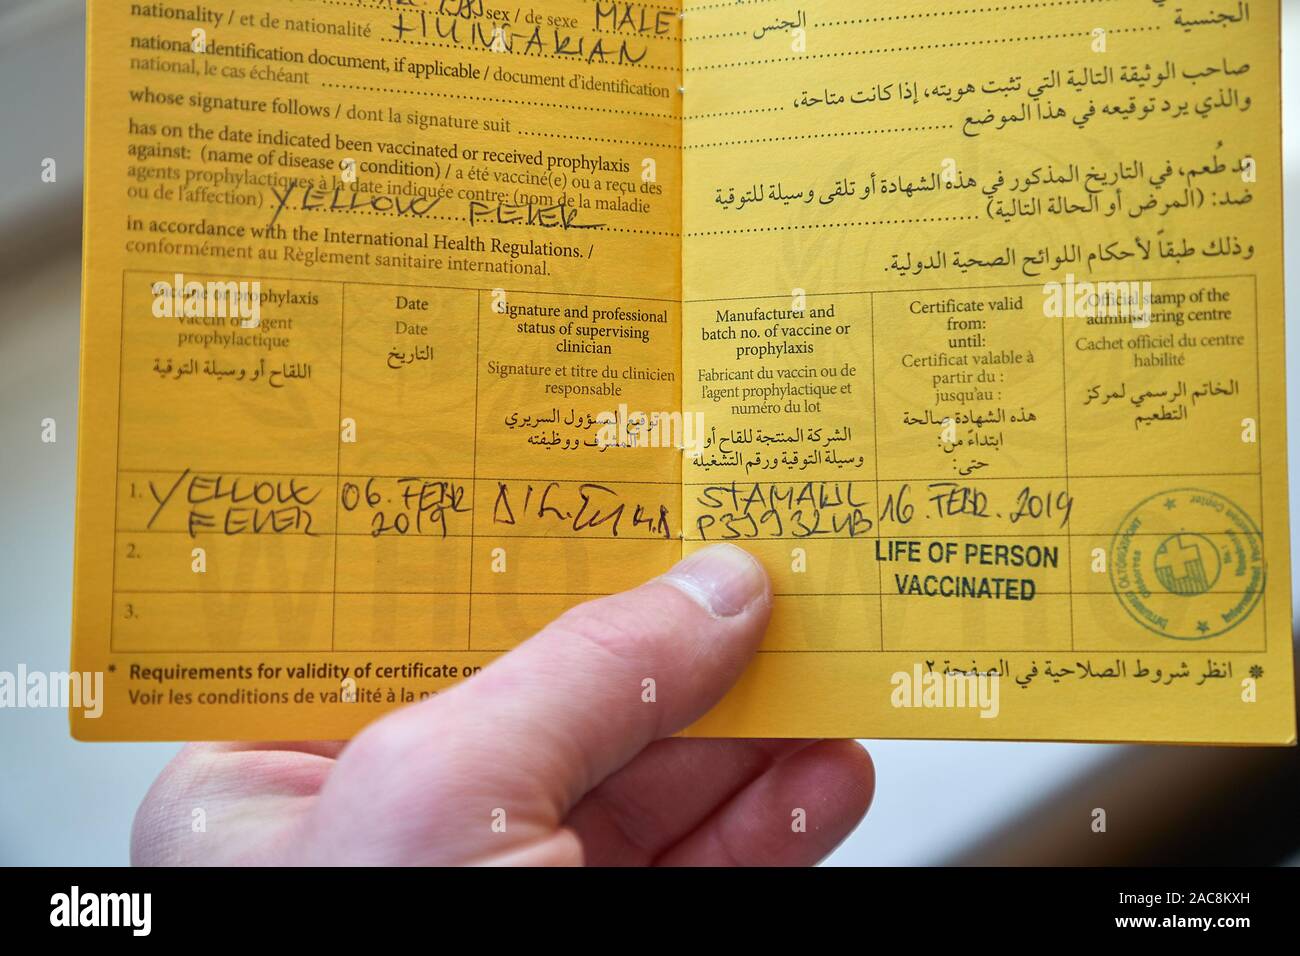 sex / de sexe MALE
nationality / et de nationalité HUNGARIAN
national identification document, if applicable / document d'identification
national, le cas échéant
whose signature follows / dont la signature suit
has on the date indicated been vaccinated or received prophylaxis
against: (name of disease or condition) / a été vacciné(e) ou a reçu des
agents prophylactiques à la date indiquée contre: (nom de la maladie
ou de l'affection) YELLOW FEVER
in accordance with the International Health Regulations. /
conformément au Règlement sanitaire international.
الجنس
الجنسية
صاحب الوثيقة التالية التي تثبت هويته، إذا كانت متاحة،
والذي يرد توقيعه في هذا الموضع
قد طُعم، في التاريخ المذكور في هذه الشهادة أو تلقى وسيلة للتوقية
ضد: (المرض أو الحالة التالية)
وذلك طبقاً لأحكام اللوائح الصحية الدولية.
Vaccine or prophylaxis
Vaccin ou agent
prophylactique
اللقاح أو وسيلة التوقية
Date
Date
التاريخ
Signature and professional
status of supervising
clinician
Signature et titre du clinicien
responsable
توقيع المسؤول السريري
المشرف ووظيفته
Manufacturer and
batch no. of vaccine or
prophylaxis
Fabricant du vaccin ou de
l'agent prophylactique et
numéro du lot
الشركة المنتجة للقاح أو
وسيلة التوقية ورقم التشغيلة
Certificate valid
from:
until:
Certificat valable à
partir du :
jusqu'au :
هذه الشهادة صالحة
ابتداءً من:
حتى:
Official stamp of the
administering centre
Cachet officiel du centre
habilité
الخاتم الرسمي لمركز
التطعيم
1. YELLOW
FEVER
06. FEBR
2019
STAMARIL
16. FEBR. 2019
2.
LIFE OF PERSON
VACCINATED
3.
* Requirements for validity of certificate
Voir les conditions de validité à la
* انظر شروط الصلاحية في الصفحة ٢
alamy
Image ID: 2AC8KXH
www.alamy.com